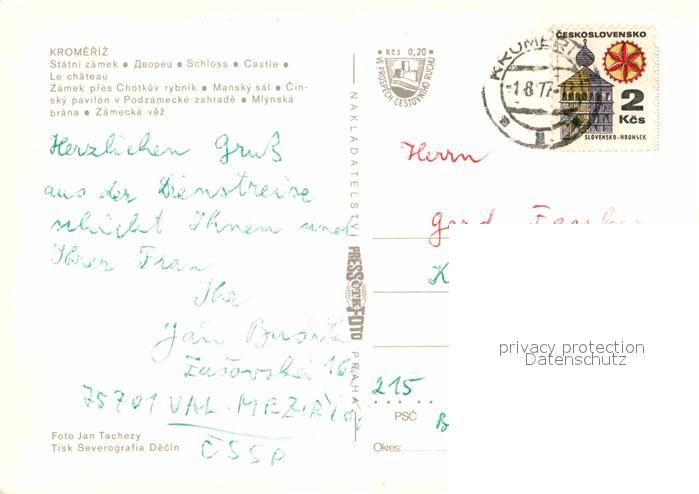 KROMĚŘÍŽ
Státní zámek ● Дворец ● Schloss ● Castle ●
Le château
Zámek přes Chotkův rybník ● Manský sál ● Čín-
ský pavilón v Podzámecké zahradě ● Mlýnská
brána ● Zámecká věž
Herzlichen Gruß
aus der Dienstreise
schickt Ihnen und
Ihrer Frau
Ihr
Ján
Zašovská
75701 VAL. MEZIŘÍČÍ
ČSSR
Foto Jan Tachezy
Tisk Severografia Děčín
NAKLADATELSTVÍ
PRESSFOTO
ČTK
PRAHA
Kčs 0,20
VE PROSPĚCH CESTOVNÍHO RUCHU
KROMĚŘÍŽ
-1.8.77-
ČESKOSLOVENSKO
2
Kčs
SLOVENSKO-HRONSEK
Herrn
K
215
PSČ
Okres:
privacy protection
Datenschutz